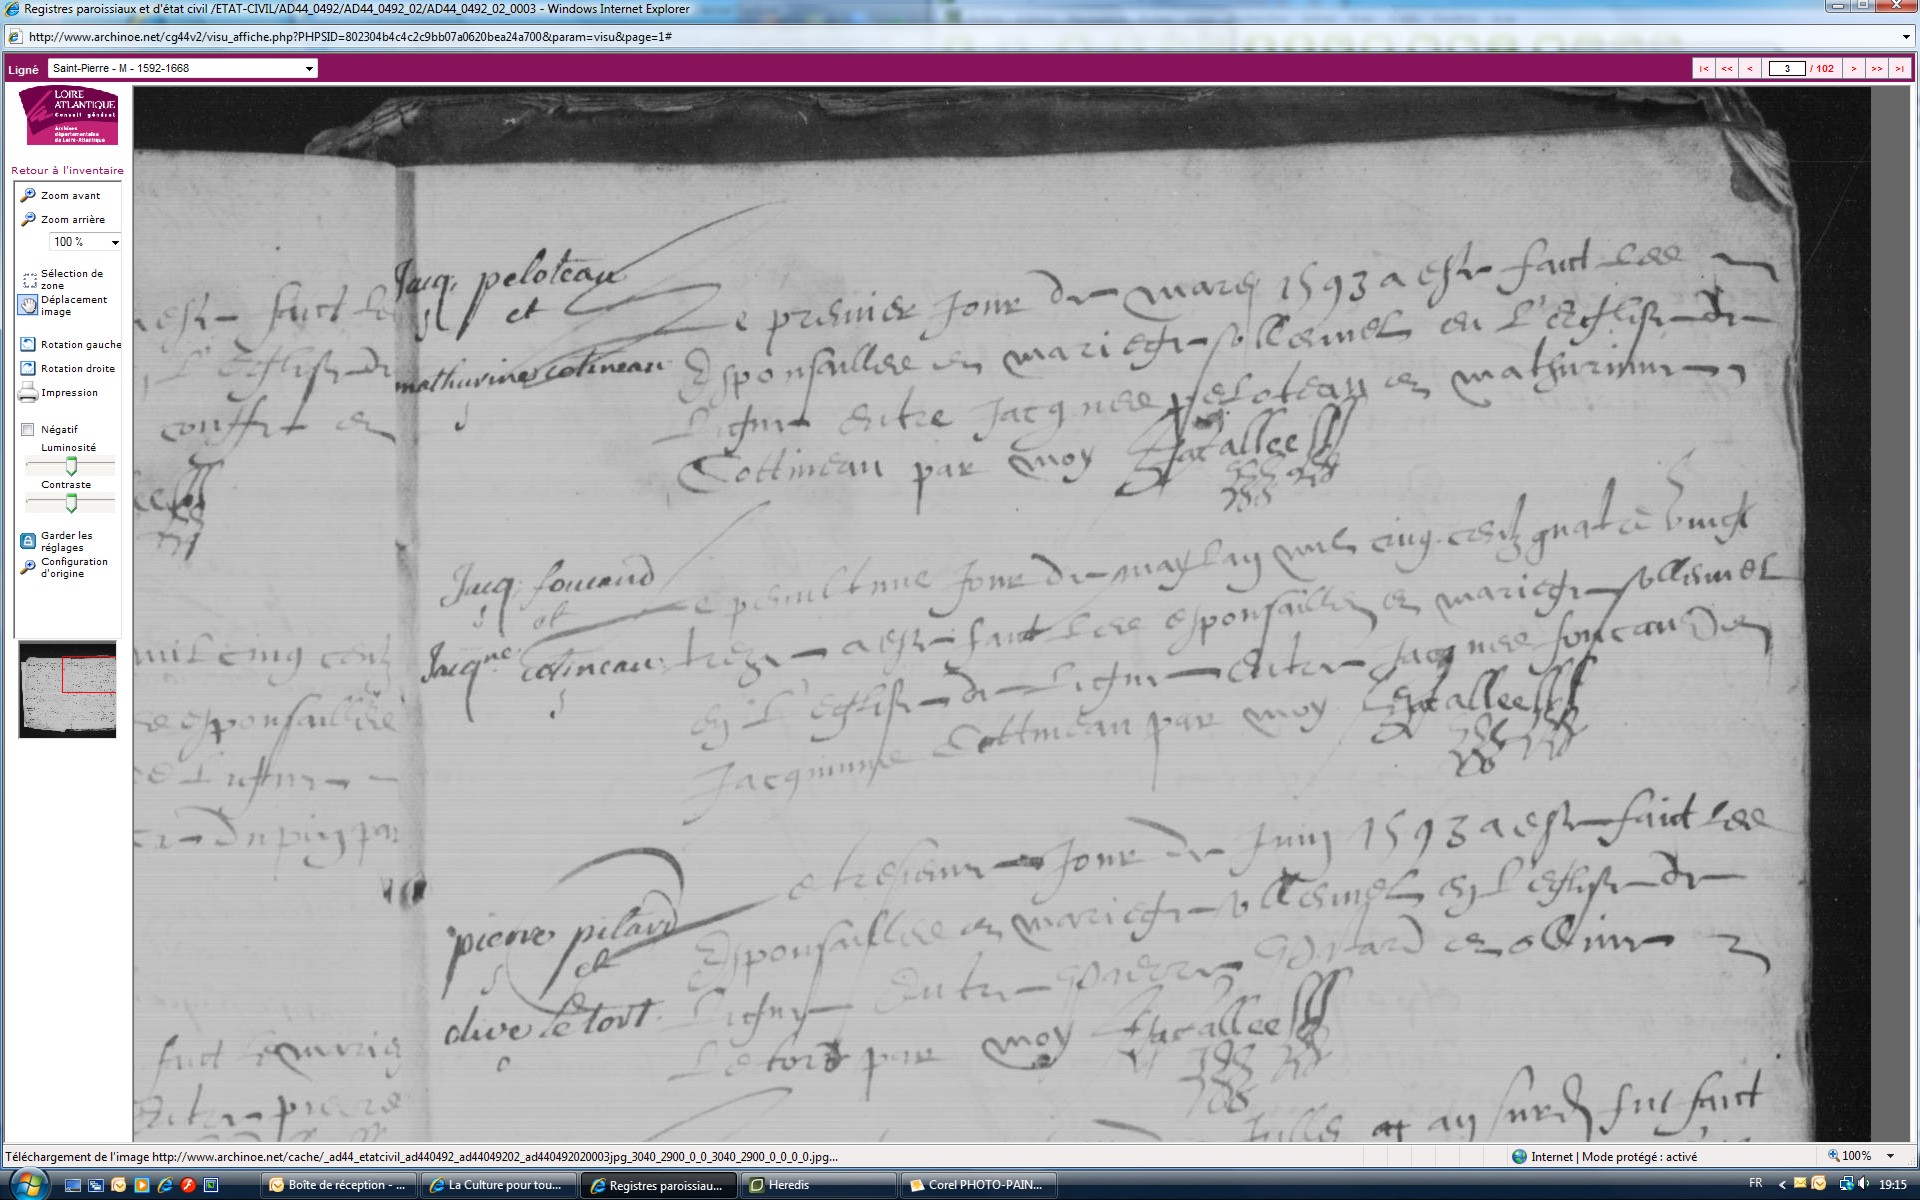 Registres paroissiaux et d'état civil /ETAT-CIVIL/AD44_0492/AD44_0492_02/AD44_0492_02_0003 - Windows Internet Explorer
http://www.archinoe.net/cg44v2/visu_affiche.php?PHPSID=802304b4c4c2c9bb07a0620bea24a700&param=visu&page=1#
Ligné
Saint-Pierre - M - 1592-1668
|< << < 3 / 102 > >> >|
LOIRE
ATLANTIQUE
Conseil général
Archives
départementales
de Loire-Atlantique
Retour à l'inventaire
Zoom avant
Zoom arrière
100 %
Sélection de
zone
Déplacement
image
Rotation gauche
Rotation droite
Impression
Négatif
Luminosité
Contraste
Garder les
réglages
Configuration
d'origine
Jacq. peloteau
et
mathurine cotineau
Le premier Jour de mars 1593 a este faict les
Esponsailles en mariege sollemnel en L'eglise de
Ligne entre Jacques peloteau et mathurinne
Cottineau par moy
Jacq. foucaud
et
Jacqne cotineau
Le penultme Jour de may Lan mil cinq centz quatre vingt
treze a este faict les esponsailles en mariege sollemnel
en L'eglise de Ligne entre Jacques foucaud et
Jacquinne Cottineau par moy
pierre pilard
et
olive le tort
Le tresieme Jour de Juin 1593 a este faict les
Esponsailles en mariege sollemnel en L'eglise de
Ligne entre et ollive
Letort par moy
fut faict
a este faict le
L'eglise de
mil cinq centz
esponsailles
du pin par
faict le marieg
Entre pierre
Téléchargement de l'image http://www.archinoe.net/cache/_ad44_etatcivil_ad440492_ad44049202_ad440492020003jpg_3040_2900_0_0_3040_2900_0_0_0_0.jpg...
Internet | Mode protégé : activé
100%
Boîte de réception - ...
La Culture pour tou...
Registres paroissiau...
Heredis
Corel PHOTO-PAIN...
FR
19:15